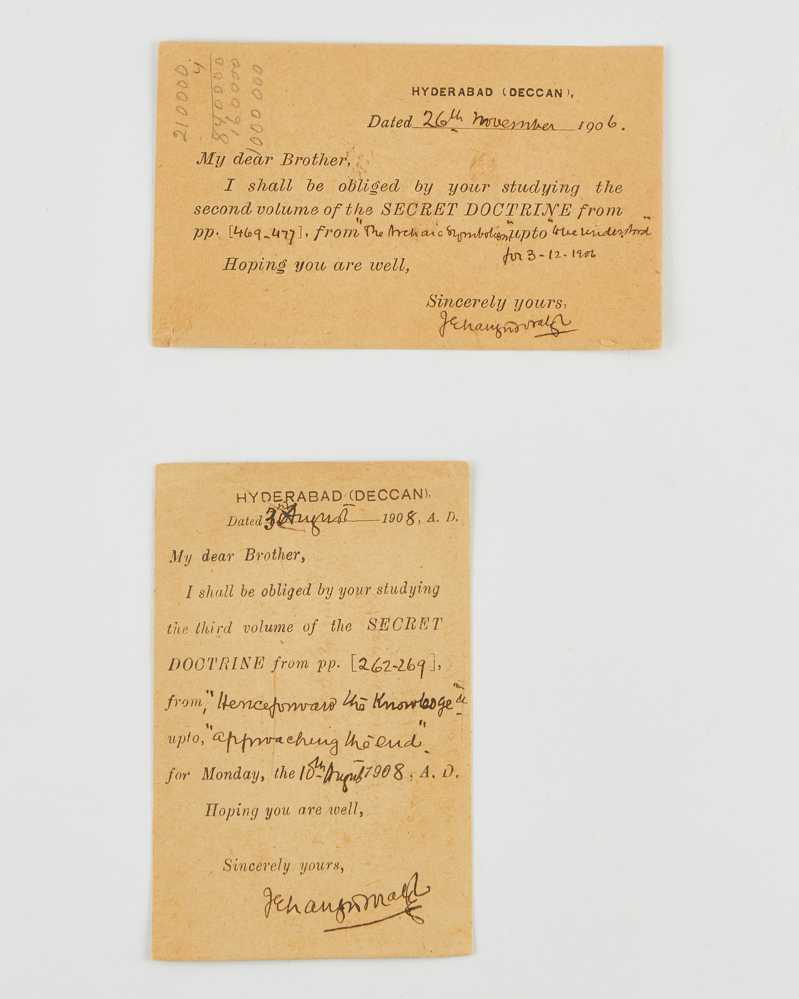 210000.
4
840000
160000
1000000
HYDERABAD (DECCAN),
Dated 26th November 1906.
My dear Brother,
I shall be obliged by your studying the
second volume of the SECRET DOCTRINE from
pp. [469-477], from "The Archaic Symbolism" upto "the understood"
for 3-12-1906
Hoping you are well,
Sincerely yours,
HYDERABAD (DECCAN),
Dated August 1908, A. D.
My dear Brother,
I shall be obliged by your studying
the third volume of the SECRET
DOCTRINE from pp. [262-269],
from, "Henceforward the Knowledge"
upto, "approaching the end"
for Monday, the 10th August 1908, A. D.
Hoping you are well,
Sincerely yours,